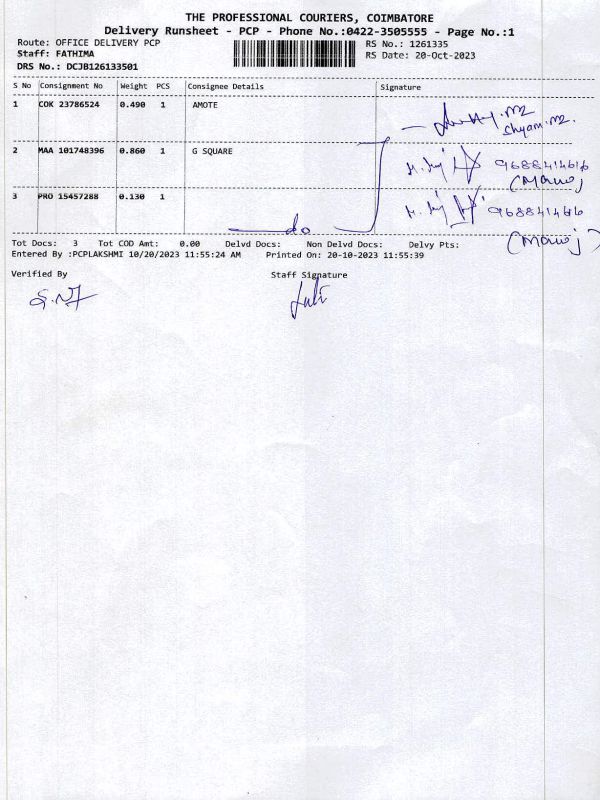 THE PROFESSIONAL COURIERS, COIMBATORE
Delivery Runsheet - PCP - Phone No.:0422-3505555 - Page No.:1
Route: OFFICE DELIVERY PCP
Staff: FATHIMA
DRS No.: DCJB126133501
RS No.: 1261335
RS Date: 20-Oct-2023
S No Consignment No Weight PCS Consignee Details Signature
1 COK 23786524 0.490 1 AMOTE
Shyam.M2.
2 MAA 101748396 0.860 1 G SQUARE
9688414616
(Manoj
3 PRO 15457288 0.130 1
do
(Manoj)
Tot Docs: 3 Tot COD Amt: 0.00 Delvd Docs: Non Delvd Docs: Delvy Pts:
Entered By :PCPLAKSHMI 10/20/2023 11:55:24 AM Printed On: 20-10-2023 11:55:39
Verified By Staff Signature